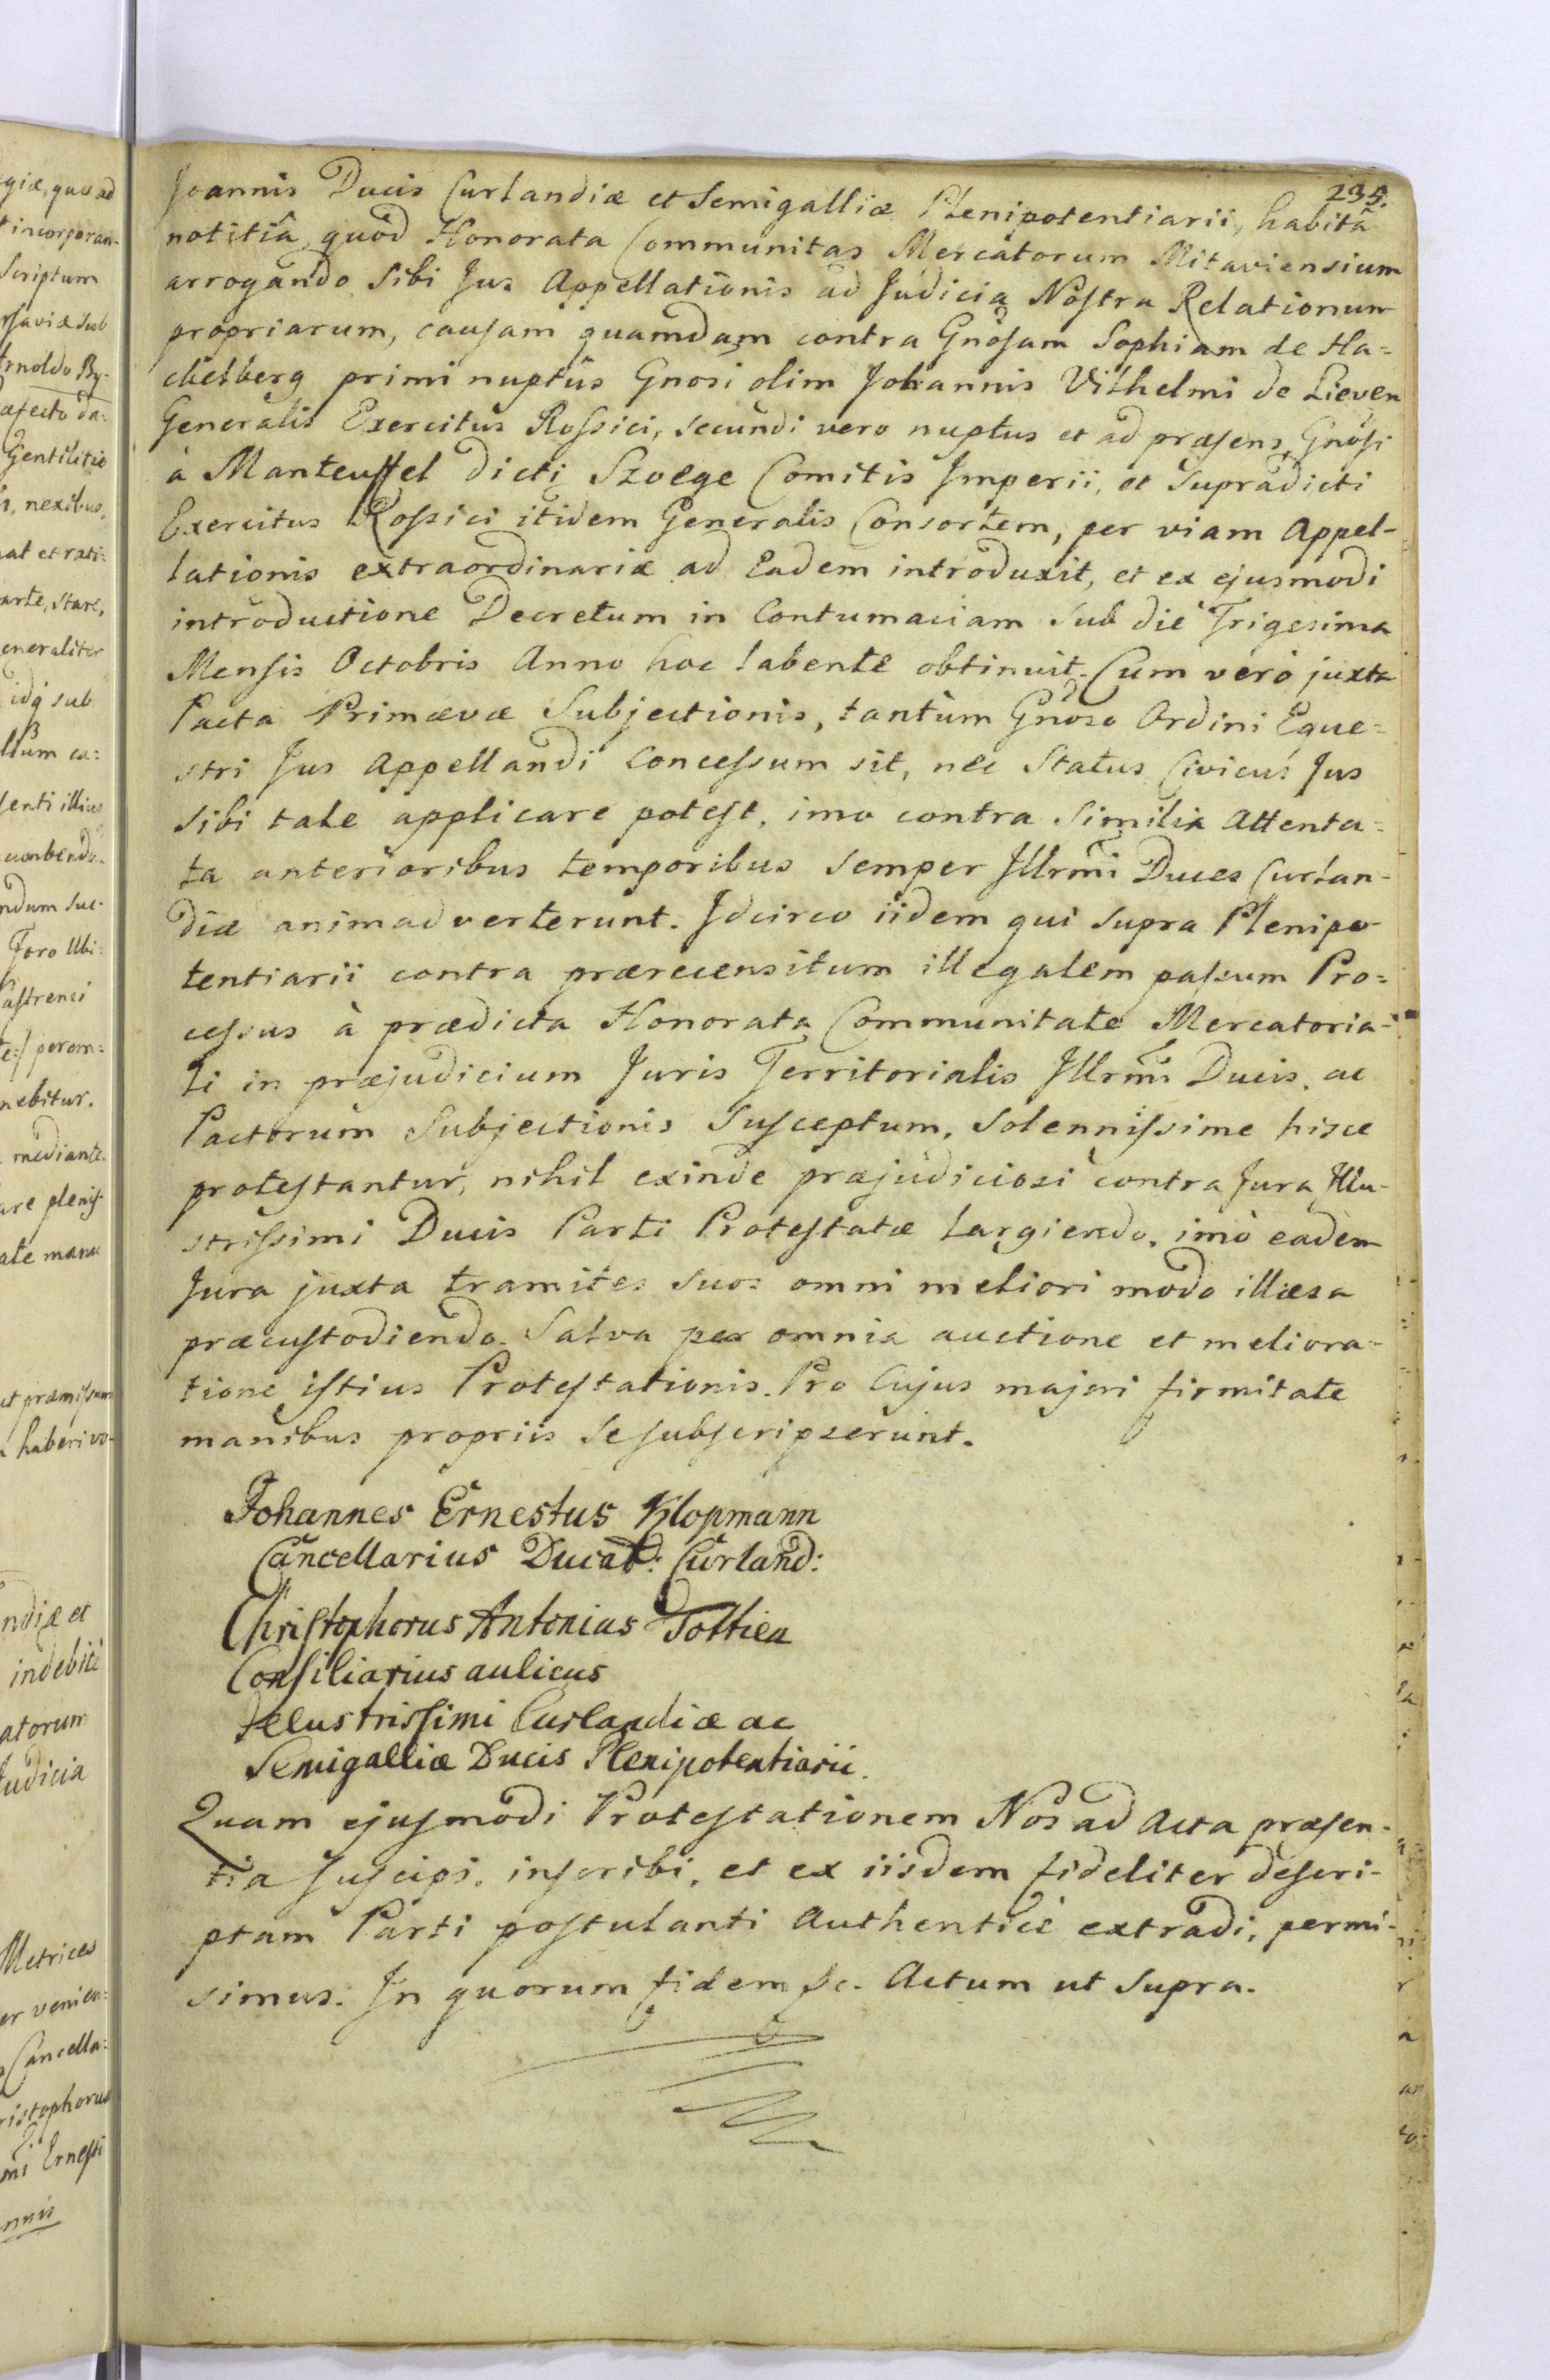 235.
Joannis Ducis Curlandiæ et Semigalliæ Plenipotentiarii, habitâ
notitiâ, quòd Honorata Communitas Mercatorum Mitaviensium
arrogando Sibi Jus Appellationis ad Judicia Nostra Relationum
propriarum, causam quamdam contra Gnosam Sophiam de Ha=
chelberg primi nuptûs Gnosi olim Johannis Vilhelmi de Lieven
Generalis Exercitus Rossici, secundi vero nuptus et ad præsens, Gnosi
à Manteuffel dicti Szoege Comitis Imperii, et Supradicti
Exercitus Rossici itidem Generalis Consortem, per viam Appel-
lationis extraordinariæ ad Eadem introduxit, et ex ejusmodi
introductione Decretum in Contumaciam Sub die Trigesima
Mensis Octobris Anno hoc labente obtinuit. Cum verò juxta
Pacta Primævæ Subjectionis, tantùm Gnoso Ordini Eque=
stri Jus Appellandi Concessum sit, nec Status Civicus Jus
Sibi tale applicare potest, imo contra Similia Attenta=
ta anterioribus temporibus semper Jllrmi Duces Curlan-
diæ animadverterunt. Jdcirco iidem qui supra Plenipo-
tentiarii contra prærecensitum illegalem passum Pro=
cessus à prædicta Honorata Communitate Mercatoria-
li in præjudicium Juris Territorialis Jllrmi Ducis, ac
Pactorum Subjectionis Susceptum, Solennissime hisce
protestantur, nihil exinde præjudiciosi contra Jura Jllu-
strissimi Ducis Parti Protestatæ largiendo, imò eadem
Jura juxta tramites suos omni meliori modo illæsa
præcustodiendo. Salva per omnia auctione et meliora-
tione istius Protestationis. Pro Cujus majori firmitate
manibus propriis Se subscripserunt.
Johannes Ernestus Klopmann
Cancellarius Ducat: Curland:
Christophorus Antonius Tottien
Consiliarius aulicus
Jllustrissimi Curlandiæ ac
Semigalliæ Ducis Plenipotentiarii.
Quam ejusmodi Protestationem Nos ad Acta præsen-
tia suscipi, inscribi, et ex iisdem fideliter descri-
ptam Parti postulanti Authenticè extradi, permi-
simus. Jn quorum fidem &c. Actum ut Supra.